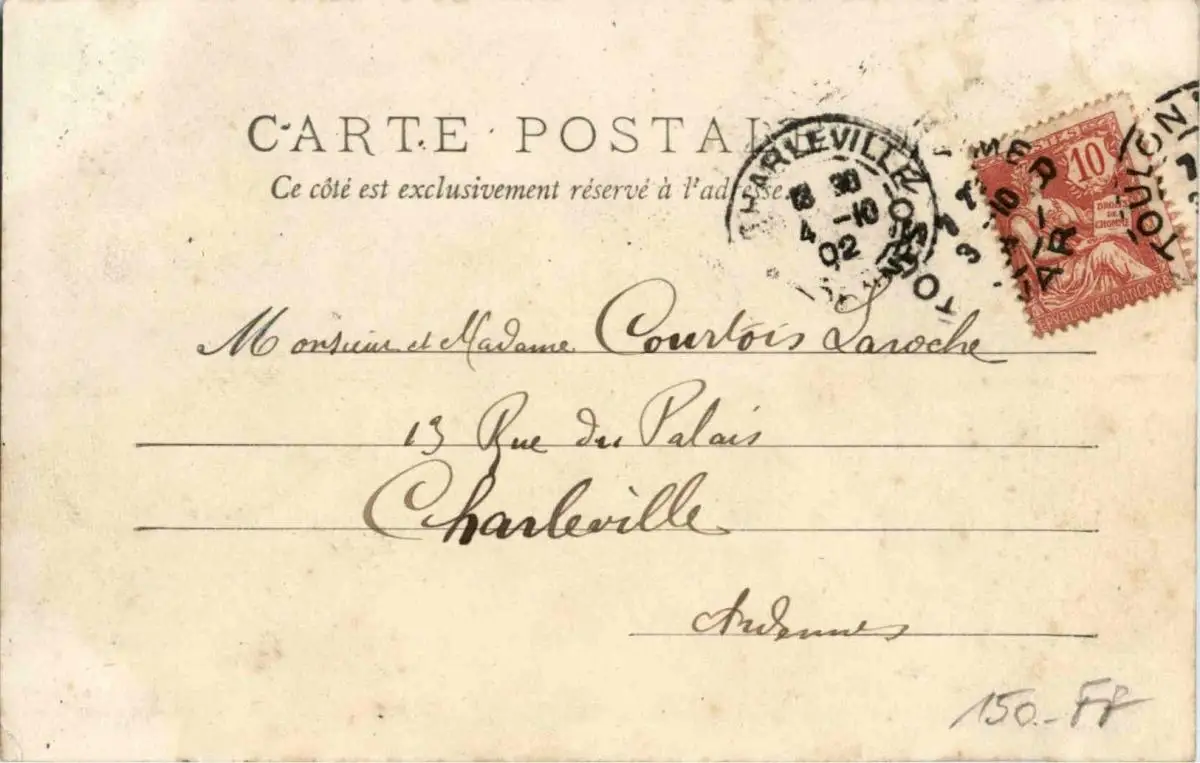 CARTE POSTALE
Ce côté est exclusivement réservé à l'adresse.
CHARLEVILLE
4 -10
02
10
DROITS
DE
L'HOMME
RÉPUBLIQUE FRANÇAISE
TOULON
VAR
Monsieur et Madame Courtois Laroche
13 Rue du Palais
Charleville
Ardennes
150.- FF